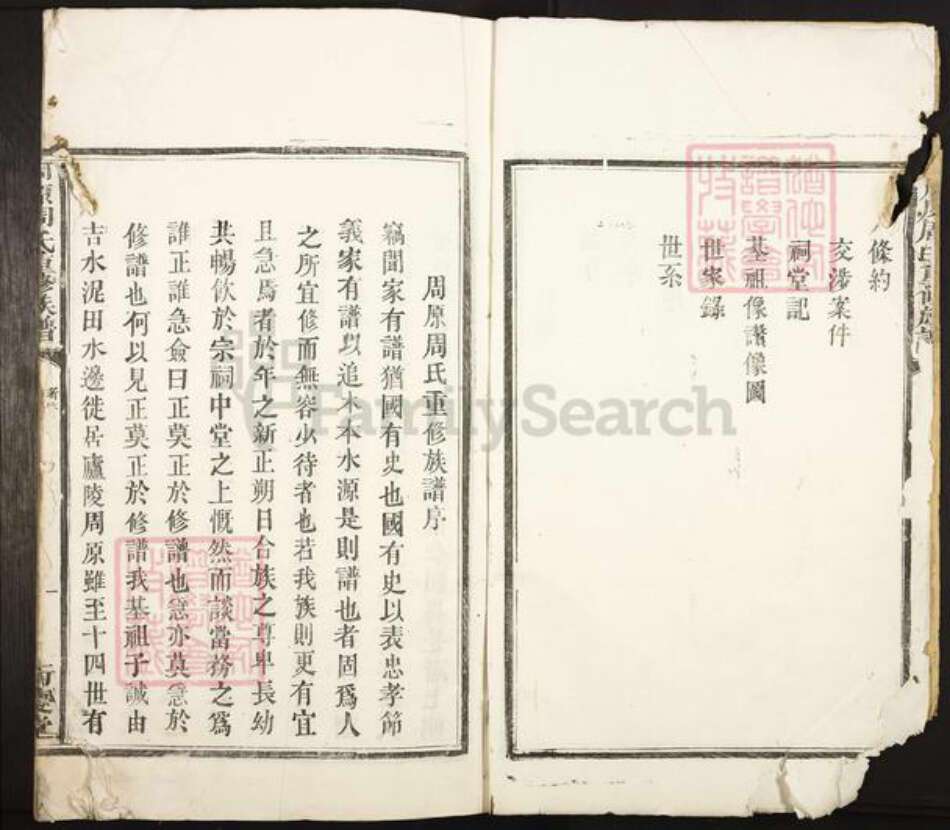 條約
交涉案件
祠堂記
基祖像讚像圖
世家錄
世系
周原周氏重修族譜序
竊聞家有譜猶國有史也國有史以表忠孝節
義家有譜以追木本水源是則譜也者固爲人
之所宜修而無容少待者也若我族則更有宜
且急焉者於年之新正朔日合族之尊卑長幼
共暢飲於宗祠中堂之上慨然而談當務之爲
誰正誰急僉曰正莫正於修譜也急亦莫急於
修譜也何以見正莫正於修譜我基祖子誠由
吉水泥田水邊徙居廬陵周原雖至十四世有
周氏重修族譜
一
FamilySearch